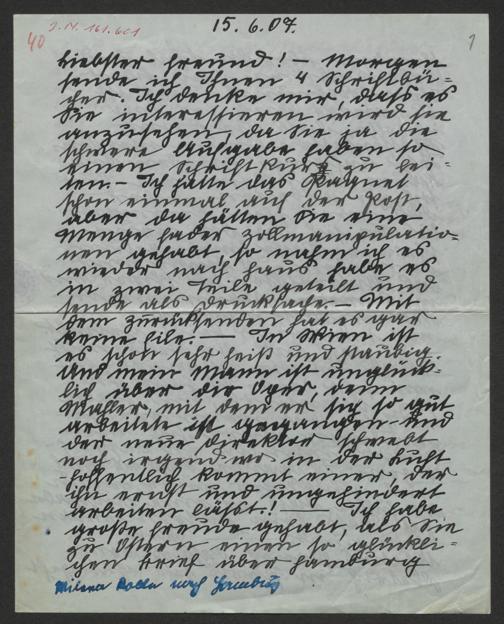 J.N. 161.601
15.6.07.
40
1
Liebster Freund! – Morgen
sende ich Ihnen 4 Schriftbü=
cher. Ich denke mir, dass es
Sie interessieren wird sie
anzusehen, da Sie ja die
schwere Aufgabe haben so
einen Schriftkurs zu lei=
ten. – Ich hatte das Paquet
schon einmal auf der Post,
aber da hätten Sie eine
Menge fader Zollmanipulatio=
nen gehabt, so nahm ich es
wieder nach haus habe es
in zwei Teile geteilt und
sende als Drucksache. – Mit
dem zurücksenden hat es gar
keine Eile. — In Wien ist
es schon sehr heiß und staubig.
Und mein Mann ist unglück=
lich über die Oper, denn
Mahler, mit dem er sich so gut
arbeitete ist gegangen und
der neue Direktor schwebt
noch irgend-wo in der Luft
hoffentlich kommt einer, der
ihn ernst und ungehindert
arbeiten lässt! — Ich habe
große Freude gehabt, als Sie
zu Ostern einen so glückli=
chen Brief über Hamburg
Milena Roller nach Hamburg